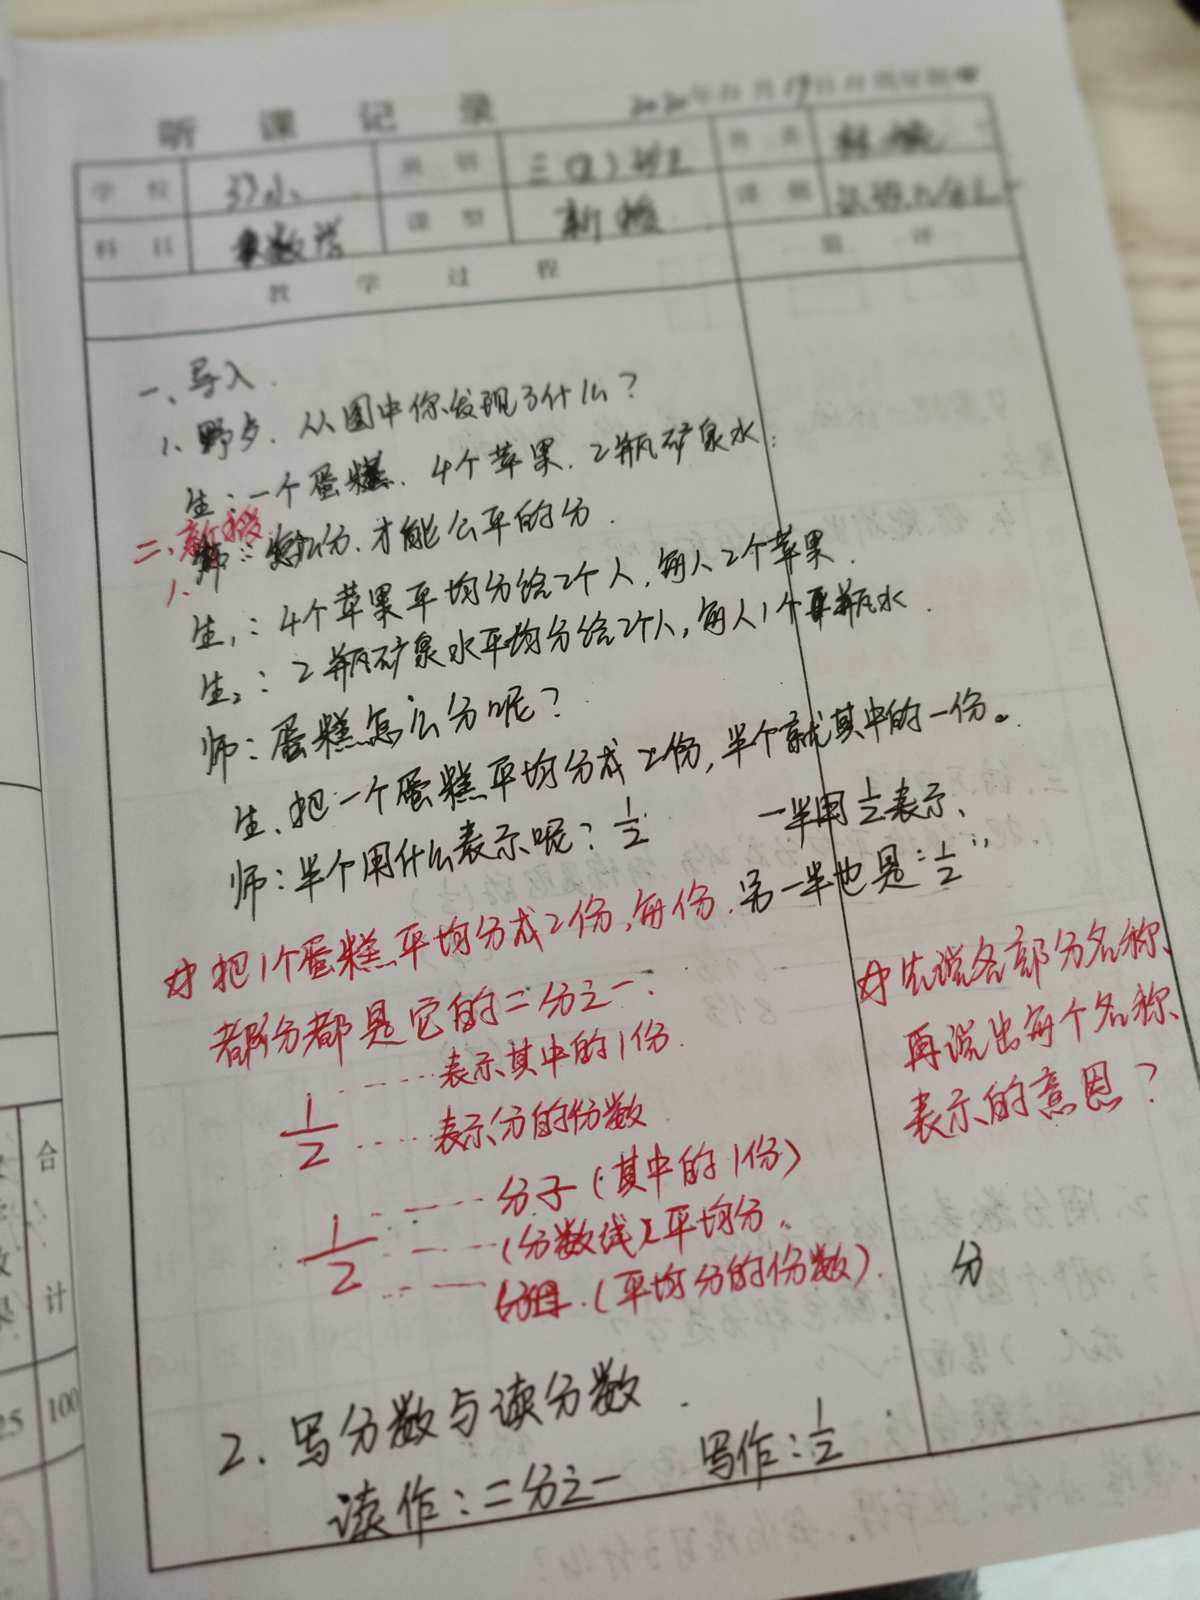 听课记录
2020年 月19日
学校 三( )班
科目 数学 课型 新授 课题
教学过程
一、导入.
1、野乡. 从图中你发现了什么?
生:一个蛋糕、4个苹果、2瓶矿泉水;
二、新授
1. 师:怎么分,才能公平的分.
生1:4个苹果平均分给2个人,每人2个苹果.
生2:2瓶矿泉水平均分给2个人,每人1个瓶水.
师:蛋糕怎么分呢?
生、把一个蛋糕平均分成2份,半个就其中的一份。
师:半个用什么表示呢? 1/2 一半用1/2表示、
另一半也是“1/2”
☆把1个蛋糕平均分成2份,每份
都分都是它的二分之一.
1/2 ……表示其中的1份.
……表示分的份数
1/2 ……分子(其中的1份)
……(分数线)平均分.
……分母.(平均分的份数).
☆先说各部分名称、
再说出每个名称、
表示的意思?
分
2、写分数与读分数.
读作:二分之一 写作:1/2
合计
25 100